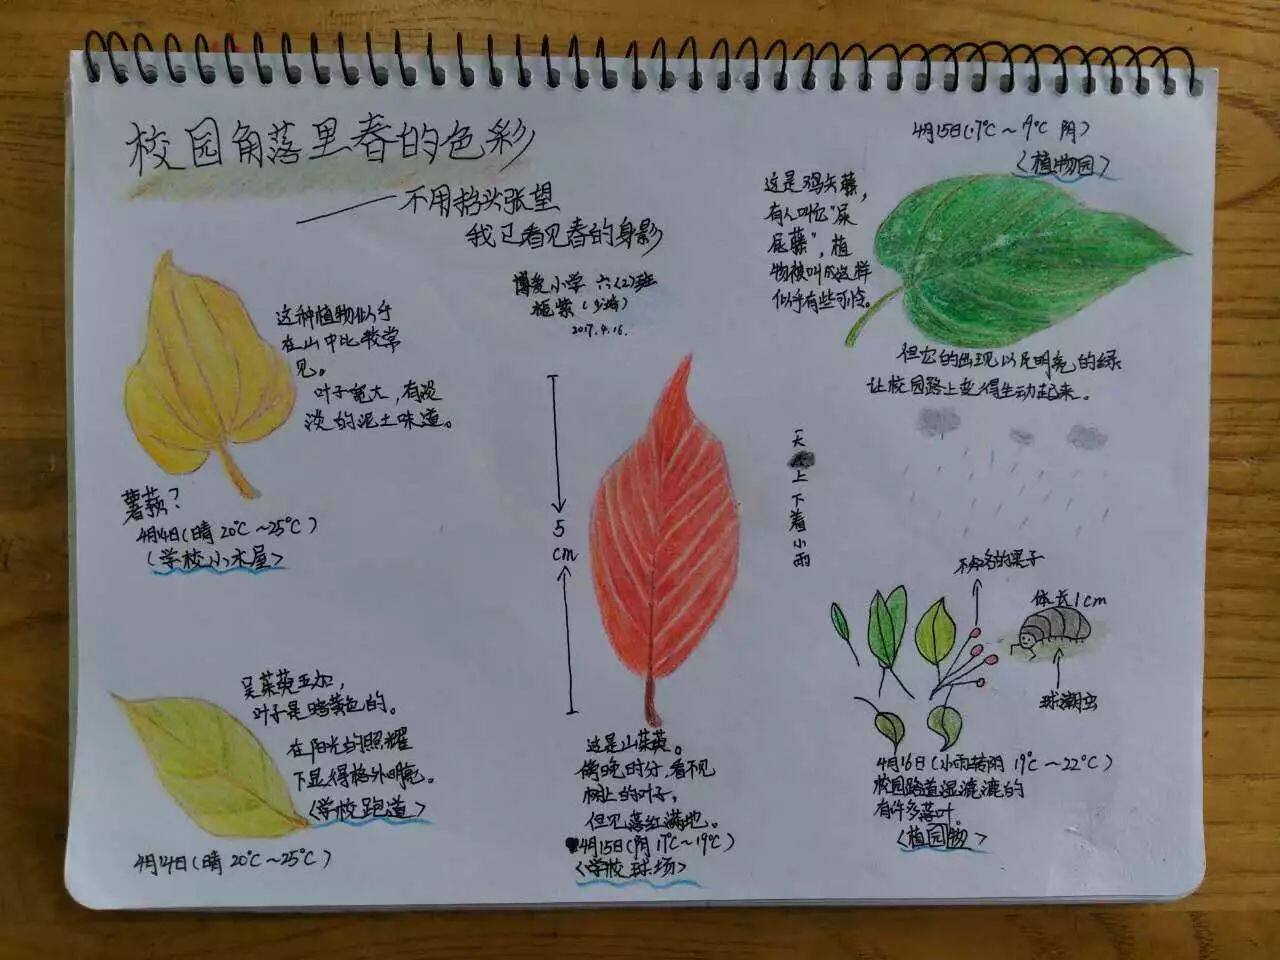 校园角落里春的色彩
——不用抬头张望
我已看见春的身影
博爱小学 六(2)班
施紫(少游)
2017.4.16.
这种植物似乎
在山中比较常
见。
叶子宽大,有淡
淡的泥土味道。
薯蓣?
4月4日(晴 20℃~25℃)
〈学校小木屋〉
吴茱萸五加,
叶子是暗黄色的。
在阳光的照耀
下显得格外明亮。
〈学校跑道〉
4月14日(晴 20℃~25℃)
5
cm
这是山茱萸。
傍晚时分,看不见
树上的叶子,
但见落红满地。
4月15日(阴 17℃~19℃)
〈学校球场〉
4月15日(17℃~19℃ 阴)
〈植物园〉
这是鸡矢藤,
有人叫它"屎
屁藤",植
物被叫成这样
似乎有些可怜。
但它的出现以及明亮的绿
让校园路上变得生动起来。
天上下着小雨
不知名的果子
体长1cm
球潮虫
4月16日(小雨转阴 19℃~22℃)
校园路道湿漉漉的
有许多落叶。
〈植园物〉